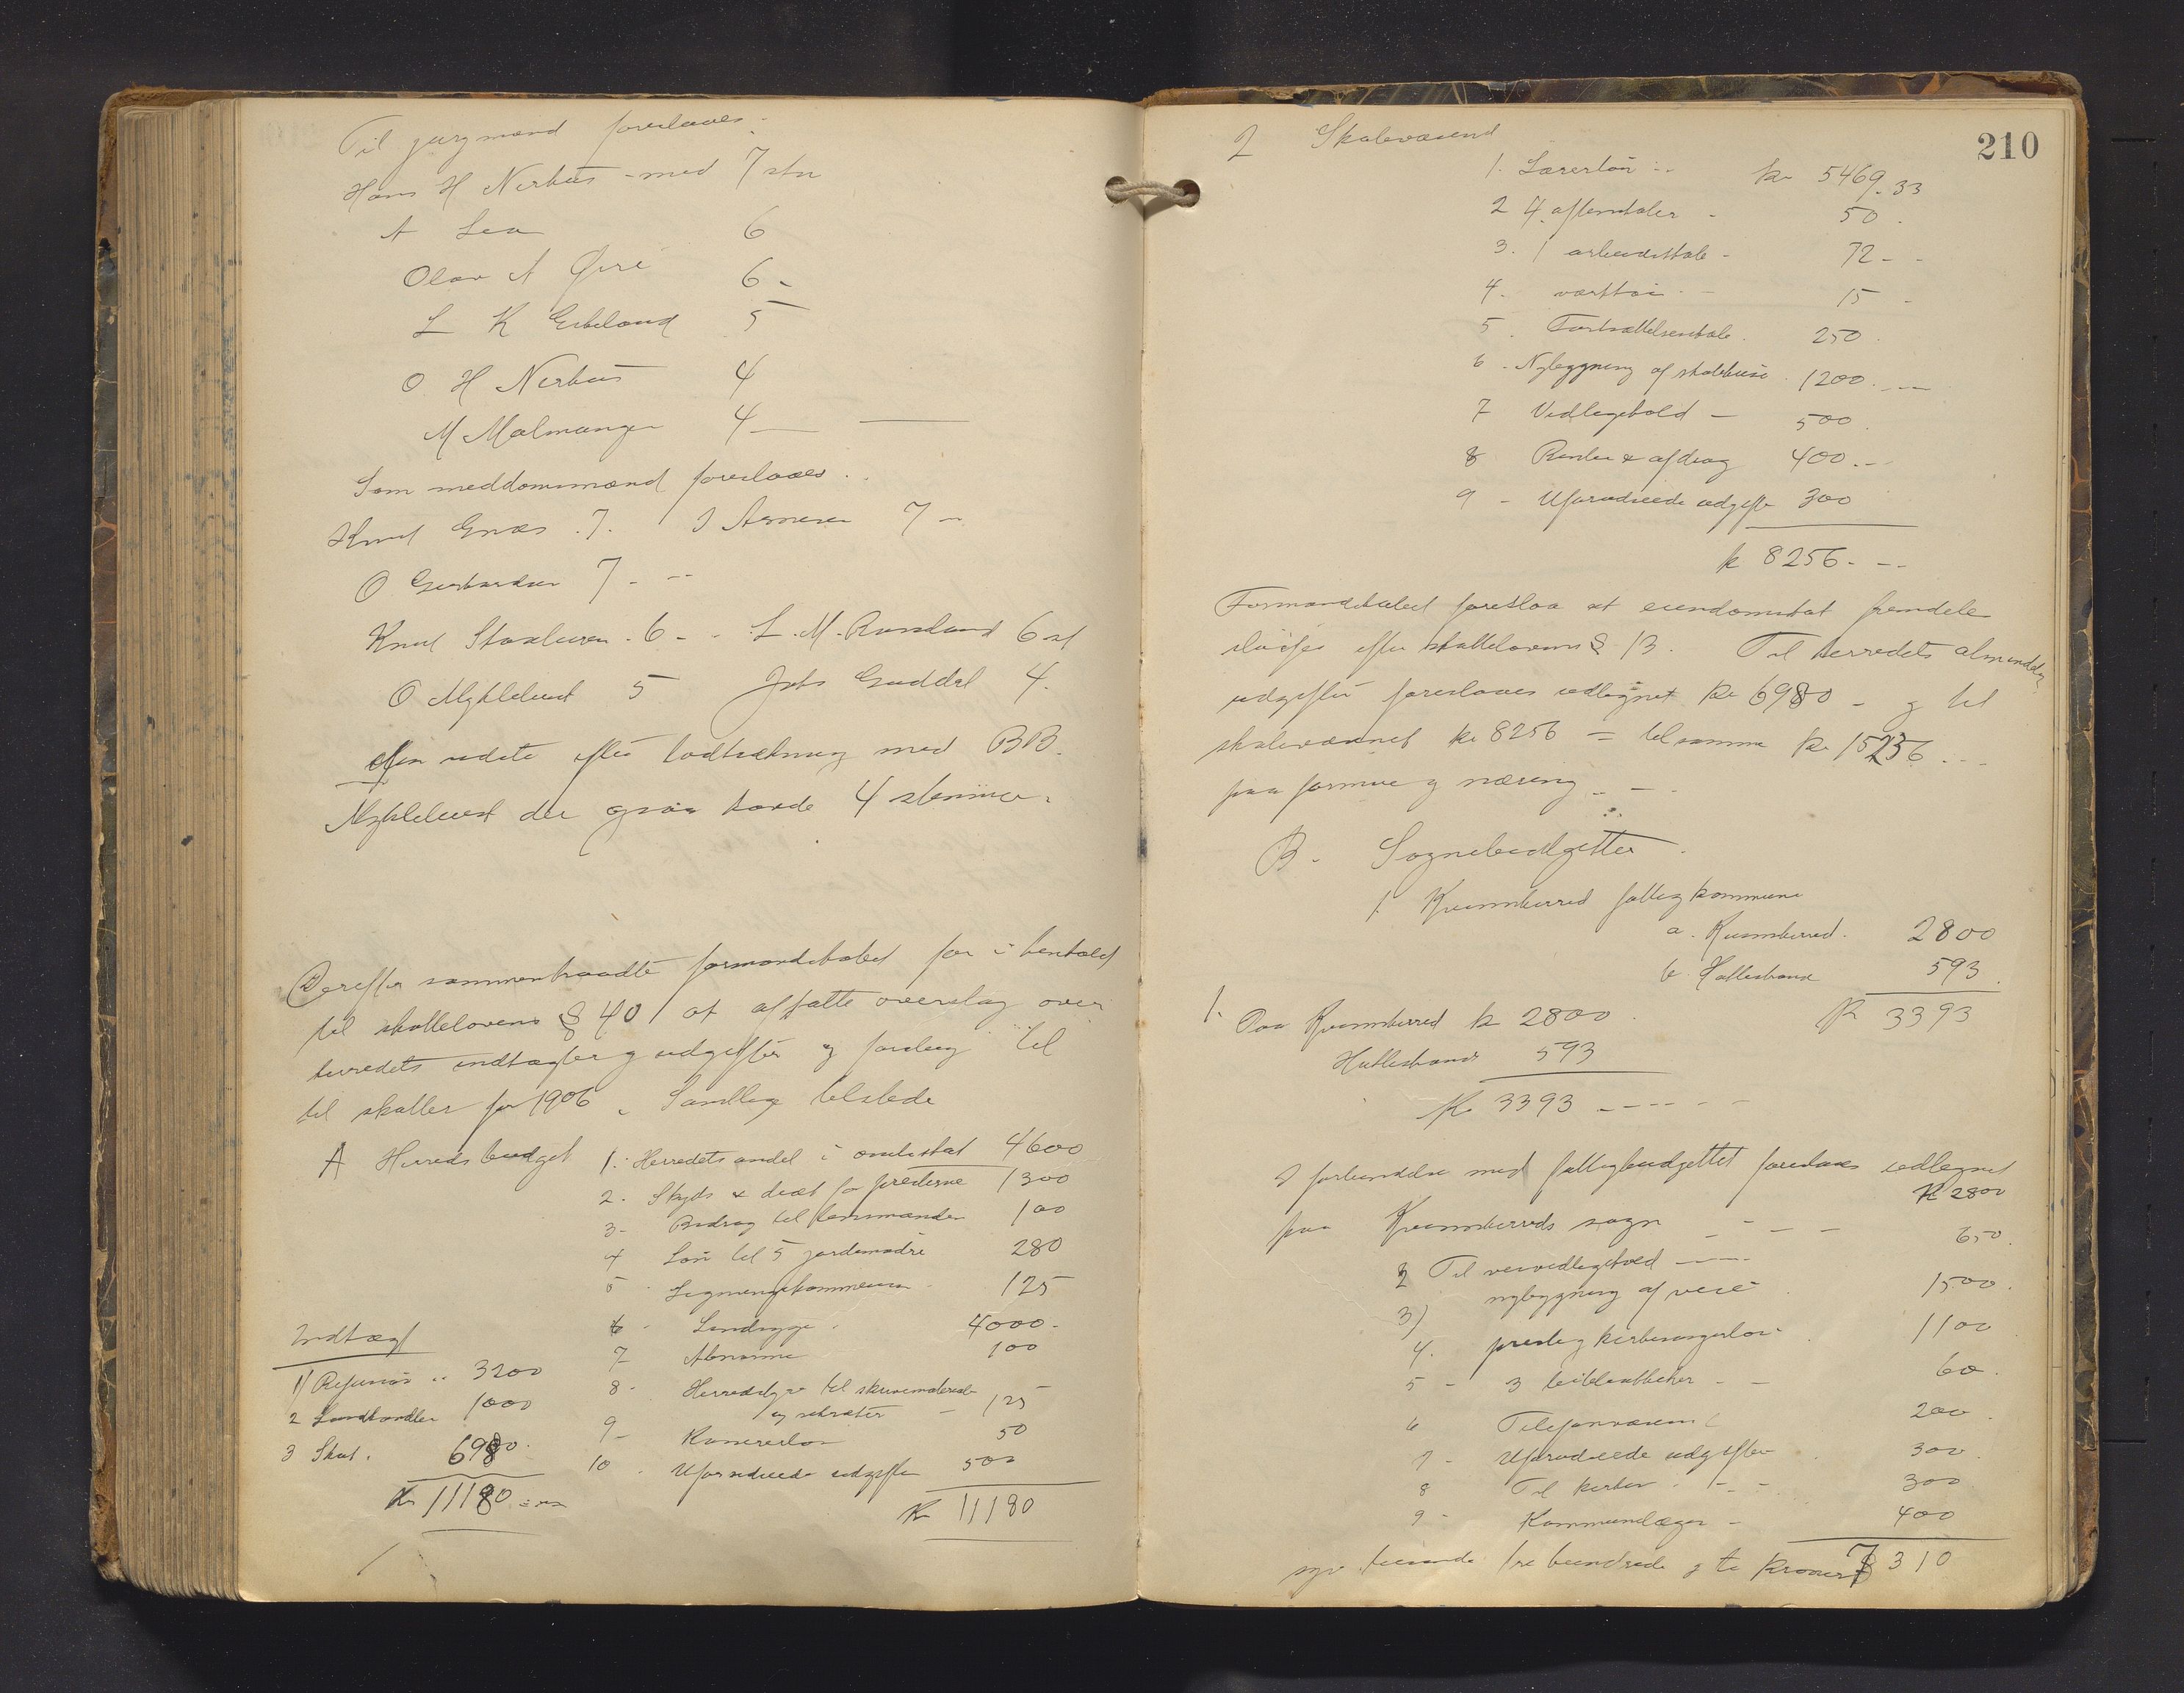 Til jurymænd foreslaaes.
Hans H Nerhus - med 7 stn
A Lea 6
Olav A Øire 6 -
L K Eikeland 5
O. H Nerhus 4
M Malmanger 4
Som meddommænd foreslaaes.
Knud Enæs. 7. J Arnesen 7 -
O Gerhardsen 7 - -
Knud 6 - L. M. Rørsland 6 st
O Myklebust 5 Guddal 4.
den sidste efter lodtrækning med BB.
Myklebust der ogsaa havde 4 stemmer.
Derefter sammentraadte formandskabet for i henhold
til skattelovens § 40 at affatte overslag over
herredets indtægter og udgifter og forslag til
til skatter for 1906. Samtlige tilstede
A Herredsbudget 1. Herredets andel i amtsskat 4600
2. Skyds & diæt for presterne 1300
3 - Bidrag til lensmanden 100
4 Løn til 5 jordemødre 280
5 Ligningskommissionen 125
6 - Sindssyge 4000 -
7 - Abnorme 100
8 - Herredsstyre til skrivematerialer
og 125
9 - Kasererløn 50
10 Uforudseede udgifter 500
Kr 11180
Indtægt
1) Refusion .. 3200
2 Landhandler 1000
3 Skat. 6980.
Kr 11180
210
2 Skolevæsend
1. Lærerløn - kr 5469.33
2 4 aftenskoler - 50.
3. 1 arbeidsskole - 72 - -
4. værktøi - 15 -
5. Fortsættelsesskole. 250.
6 - Nybygning af skolehuse. 1200. -
7 Vedlegehold - 500.
8 Renter & afdrag 400. -
9 - Uforudseede udgifter 300
kr 8256 - -
Formandskabet foreslaa at eiendomsskat fremdeles
sløifes efter skattelovens § 13. Til herredets almindelige
udgifter foreslaaes udlignet kr 6980 - og til
skolevæsenet kr 8256 = tilsammen kr 15236 ...
paa formue og næring - -
B. Sognebudgetter.
1. Kvinnherred fattigkommune
a. Kvinnherred. 2800
b. Hatlestrand 593.
Kr 3393
1. Paa Kvinnherred kr 2800.
Hatlestrand 593
Kr 3393 - - - - -
I forbindelse med fattigbudgettet foreslaaes udlignet
paa Kvinnherreds sogn - - - Kr 2800
2 Til veivedligehold - - 650.
3) nybygning af veie 1500.
4. prest og kirkesangerløn 1100
5 - 3 - - 60.
6 Telefonvæsenet 200.
7 - Uforudseede udgifter 300
8 Til kirken - - - 300
9 - Kommunelæger - 400
syv tusende tre hundrede og ti kroner 7310